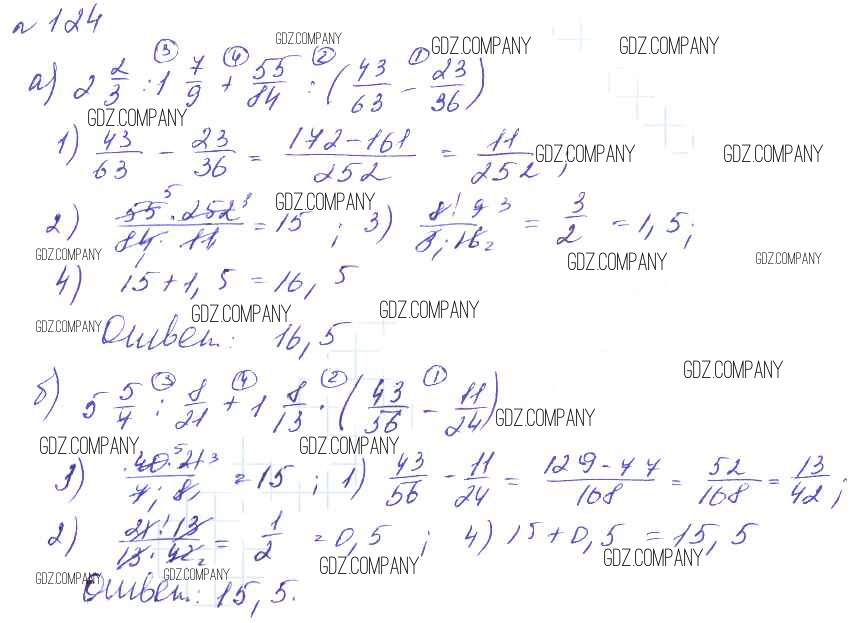 № 124
GDZ.COMPANY GDZ.COMPANY GDZ.COMPANY
а) 2 2/3 : 1 7/9 + 55/84 : (43/63 - 23/36)
③ ④ ② ①
GDZ.COMPANY
1) 43/63 - 23/36 = 172-161/252 = 11/252;
GDZ.COMPANY GDZ.COMPANY
GDZ.COMPANY
2) 55·252/84·11 = 15; 3) 8·9/3·16 = 3/2 = 1,5;
GDZ.COMPANY GDZ.COMPANY GDZ.COMPANY
4) 15+1,5=16,5
GDZ.COMPANY GDZ.COMPANY GDZ.COMPANY
Ответ: 16,5
GDZ.COMPANY
б) 5 5/7 : 8/21 + 1 8/13 · (43/56 - 11/24)
③ ④ ② ①
GDZ.COMPANY
GDZ.COMPANY GDZ.COMPANY
3) 40·21/7·8 = 15; 1) 43/56 - 11/24 = 129-77/168 = 52/168 = 13/42;
2) 21·13/13·42 = 1/2 = 0,5; 4) 15+0,5=15,5
GDZ.COMPANY GDZ.COMPANY GDZ.COMPANY GDZ.COMPANY
Ответ: 15,5.